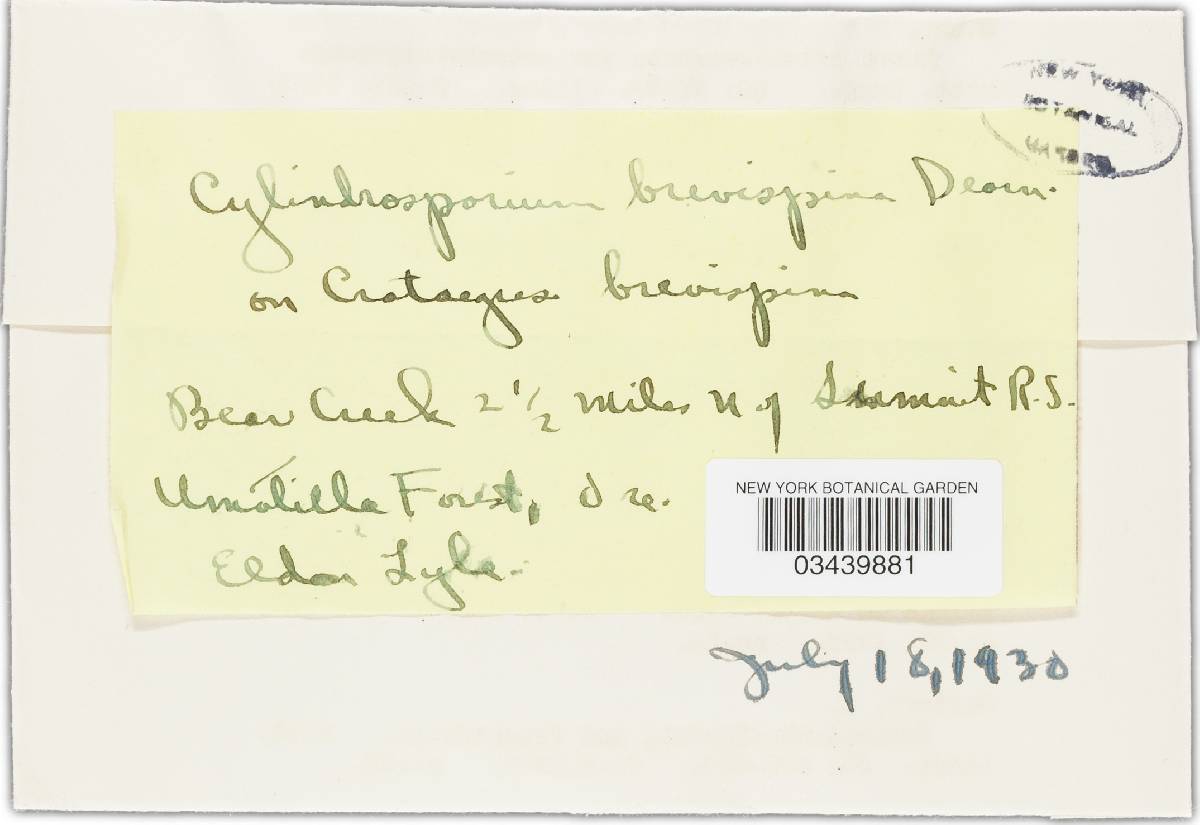 NEW YORK
BOTANICAL
Cylindrosporium brevispina Dearn.
on Crataegus brevispina
Bear Creek 2 1/2 miles N of Summit R.S.
Umatilla Forest, Ore.
Eldon Lyle.
NEW YORK BOTANICAL GARDEN
03439881
July 18, 1930